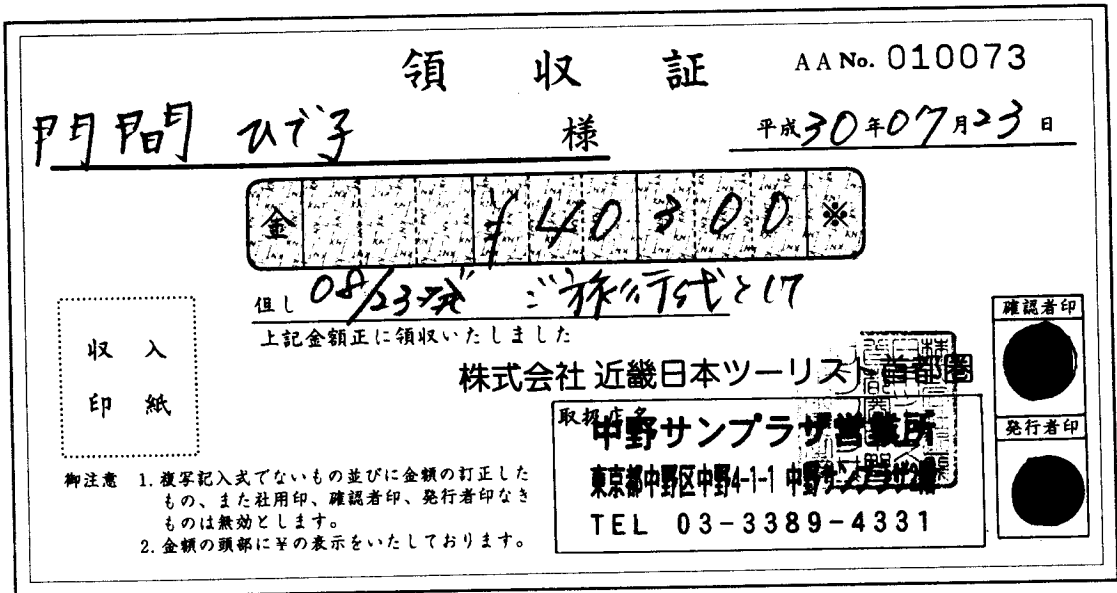 領収証 AA No. 010073
門間 ひで子 様 平成30年07月23日
金 ¥40300※
但し 08/23発 ご旅行代として
上記金額正に領収いたしました
収入
印紙
株式会社 近畿日本ツーリスト首都圏
取扱店名
中野サンプラザ営業所
東京都中野区中野4-1-1 中野サンプラザ2階
TEL 03-3389-4331
確認者印
発行者印
御注意 1. 複写記入式でないもの並びに金額の訂正した
もの、また社用印、確認者印、発行者印なき
ものは無効とします。
2. 金額の頭部に¥の表示をいたしております。